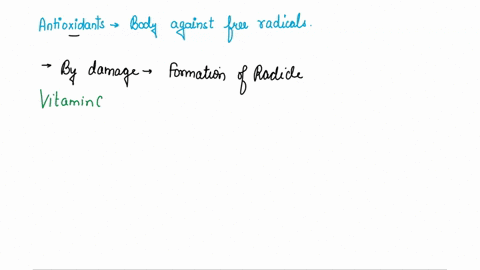 Antioxidants → Body against free radicals.
→ By damage → Formation of Radicle
Vitamin C